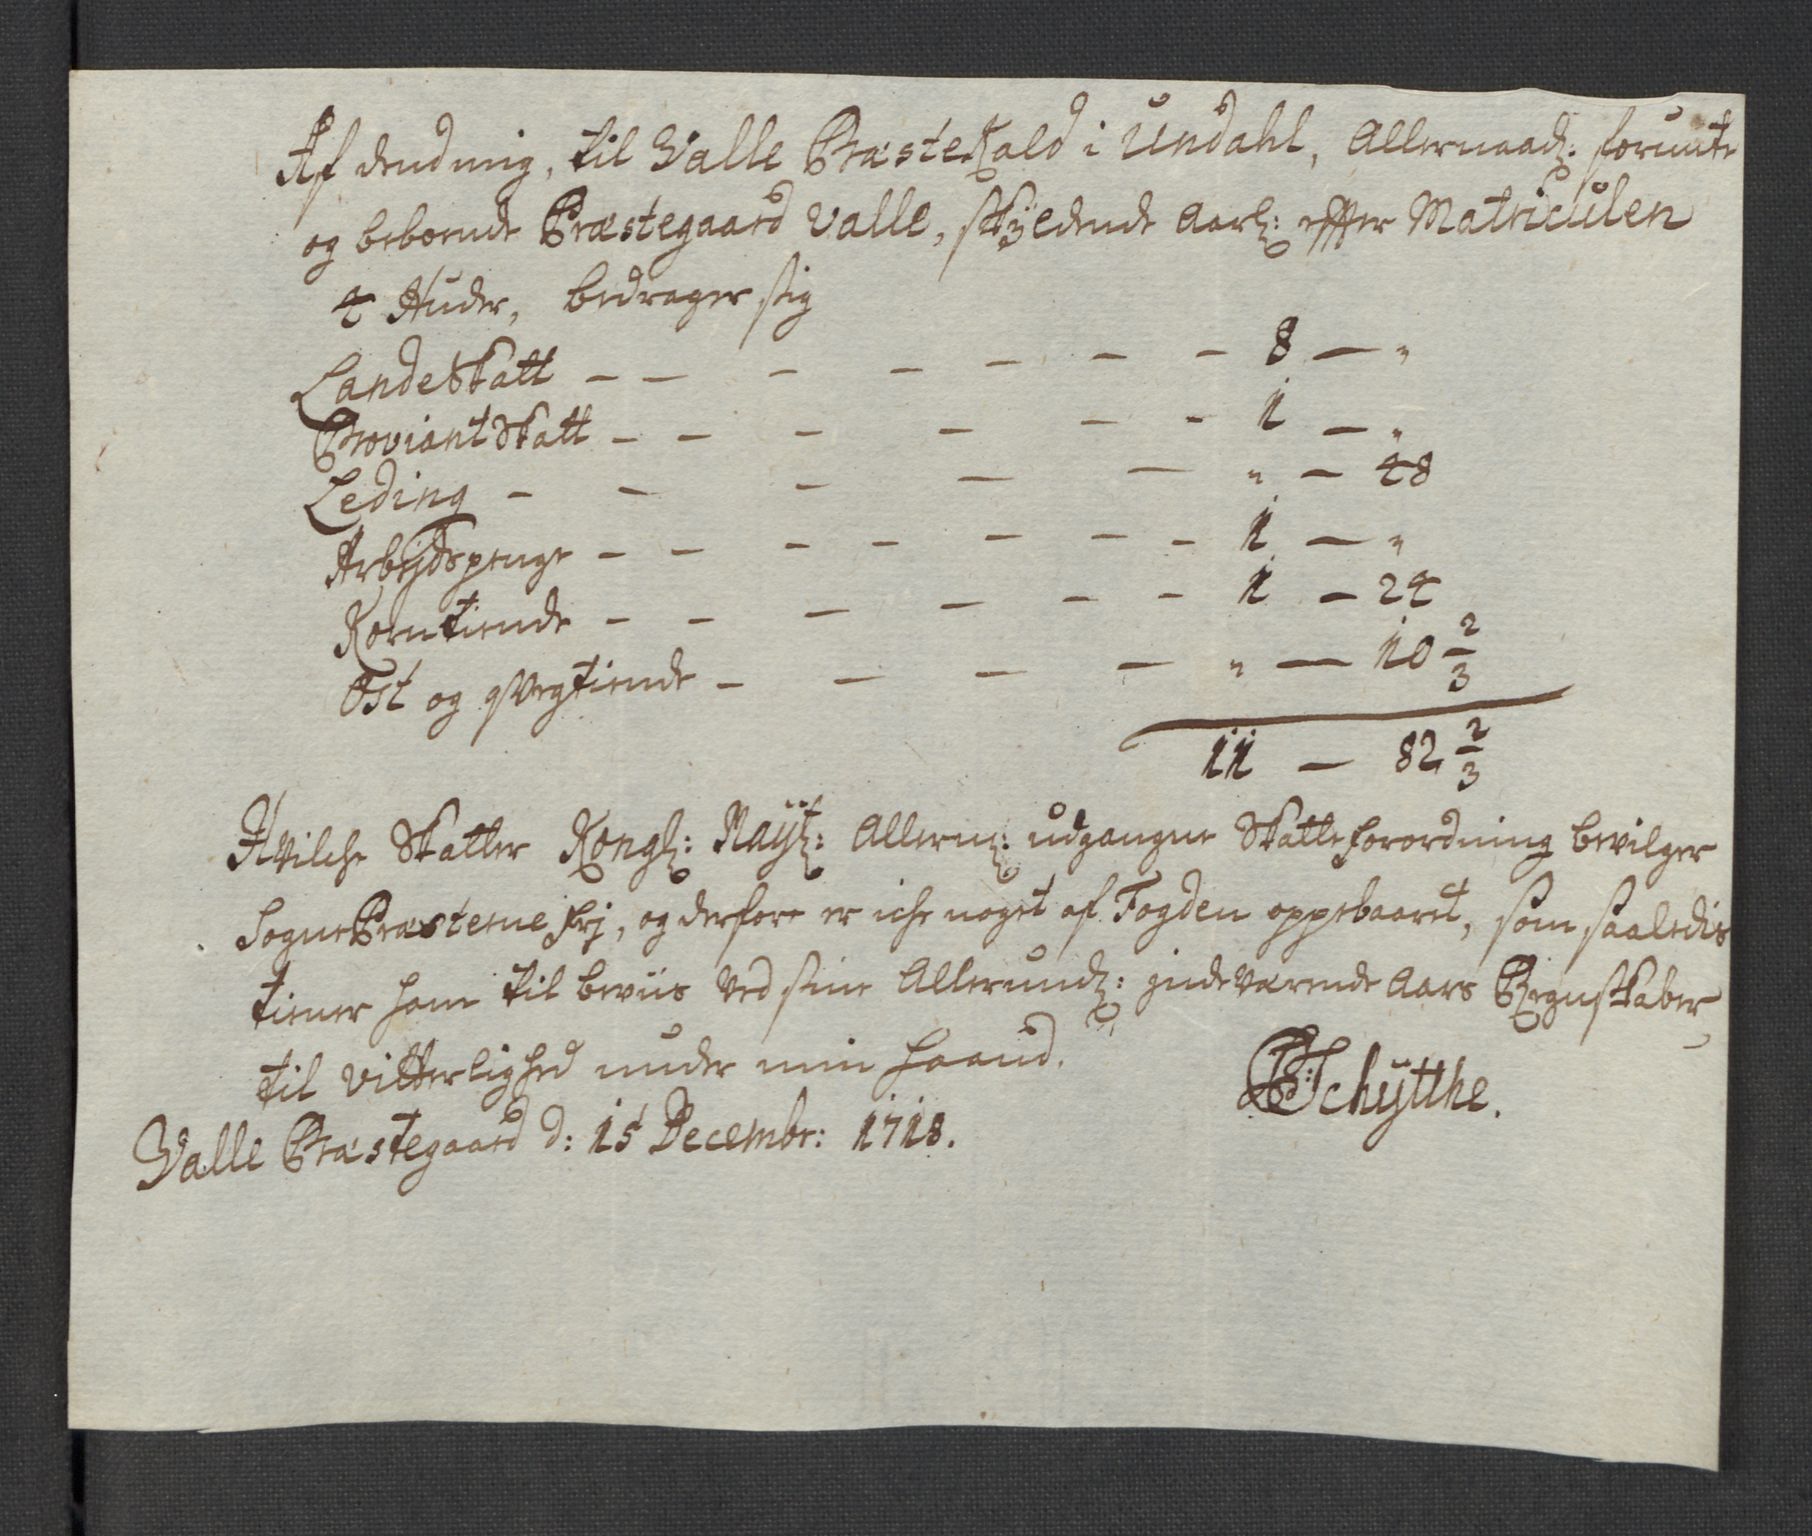 Af dend mig, til Valle PræsteKald i Undahl, Allernaad: forundte
og beboende Præstegaard Valle, skÿldende Aarl: effter Matriculen
4 Huder, bedrager sig
LandeSkatt — — — — — — — 8 — "
ProviantSkatt — — — — — — 1 — "
Leding — — — — — " — 48
Arbejdspenge — — — — — — — 1 — "
Korntiende — — — — — — 1 — 24
Ost og qvegtiende — — — — " — 10 2/3
11 — 82 2/3
Hvilche Skatter Kongl: Maÿt: Allern: udgangne Skatteforordning bevilger
SognePræsterne frj, og derfore er iche noget af Fogden oppebaaret, som saaledis
tiener ham til beviis ved sine Allerund: indeværende Aars Regnskaber
til vitterlighed under min haand.
Schÿtthe.
Valle Præstegaard d: 15 Decembr: 1718.